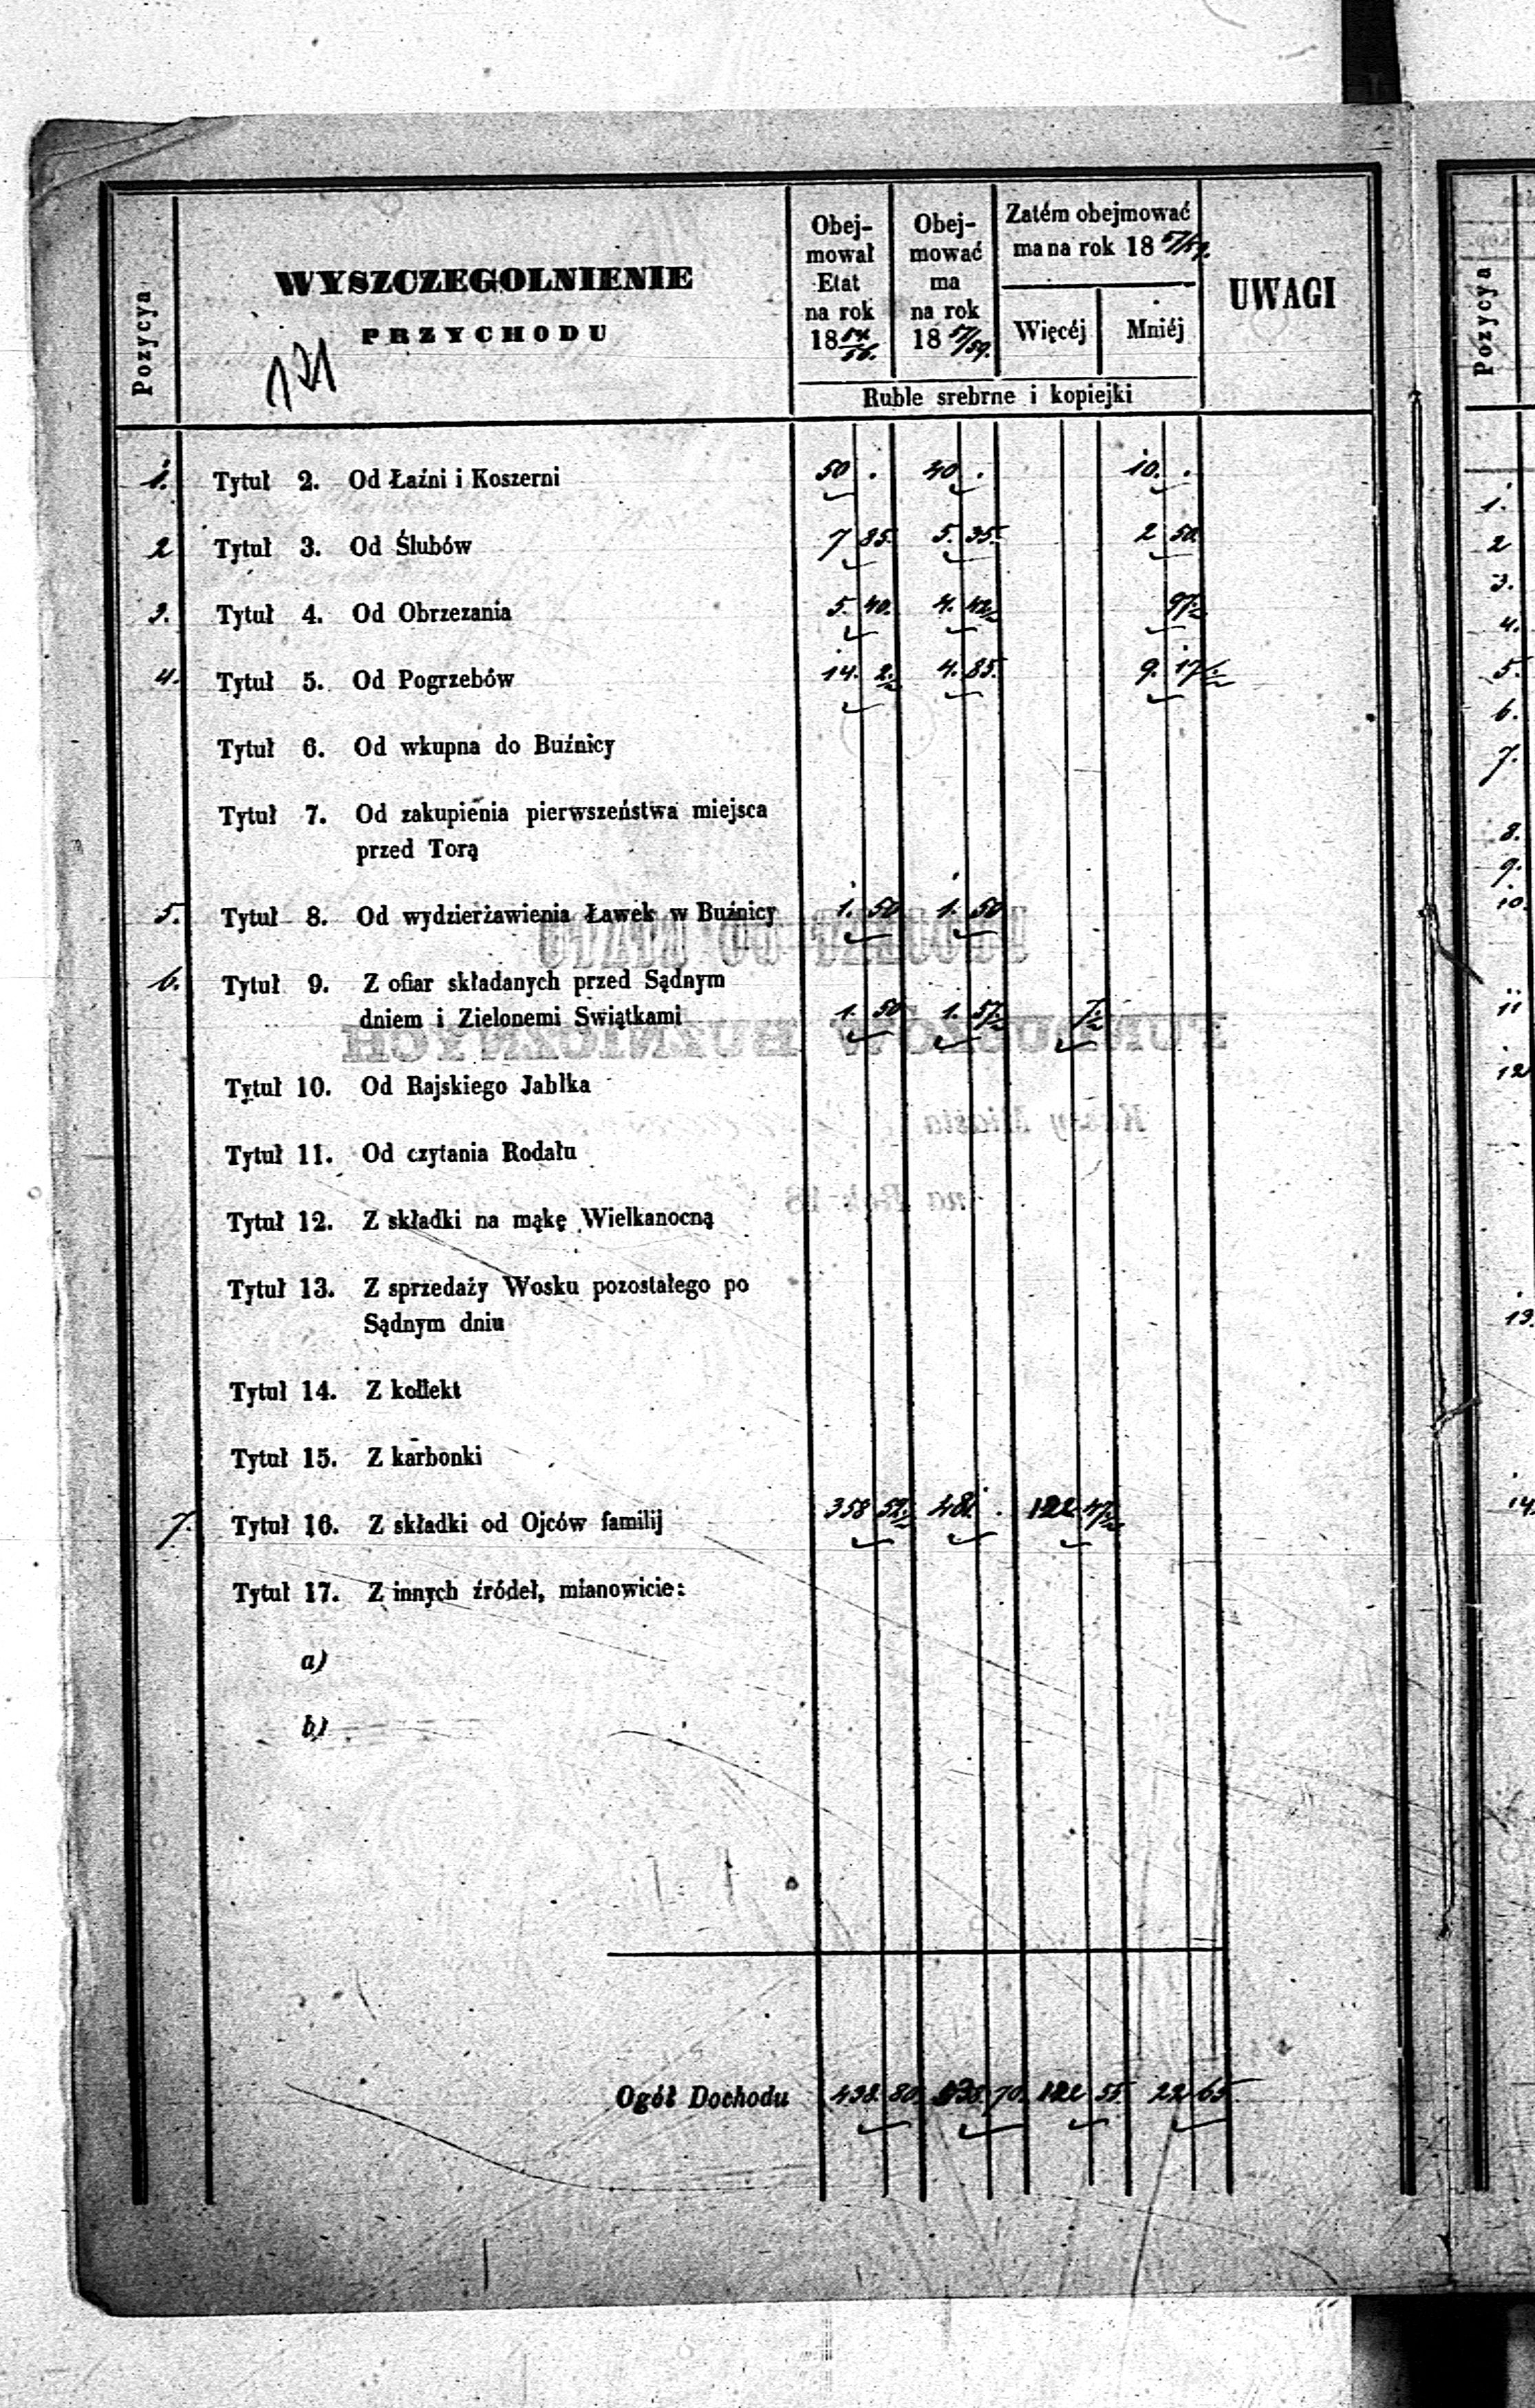 Pozycya
WYSZCZEGOLNIENIE
PRZYCHODU
121
Obej-
mował
Etat
na rok
18 54/56.
Obej-
mować
ma
na rok
18 57/59.
Zatém obejmować
ma na rok 18 57/59.
Więcéj Mniéj
Ruble srebrne i kopiejki
UWAGI
1. Tytuł 2. Od Łaźni i Koszerni 50 . 40 . 10. .
2 Tytuł 3. Od Ślubów 7 85. 5. 35. 2 50
3. Tytuł 4. Od Obrzezania 5. 40. 4. 42½ 97½
4. Tytuł 5. Od Pogrzebów 14. 2½ 4. 85. 9. 17½
Tytuł 6. Od wkupna do Buźnicy
Tytuł 7. Od zakupienia pierwszeństwa miejsca
przed Torą
5. Tytuł 8. Od wydzierżawienia Ławek w Buźnicy 1. 50 1. 50
6. Tytuł 9. Z ofiar składanych przed Sądnym
dniem i Zielonemi Swiątkami 1. 50 1. 57½ 7½
Tytuł 10. Od Rajskiego Jabłka
Tytuł 11. Od czytania Rodału
Tytuł 12. Z składki na mąkę Wielkanocną
Tytuł 13. Z sprzedaży Wosku pozostałego po
Sądnym dniu
Tytuł 14. Z kollekt
Tytuł 15. Z karbonki
7. Tytuł 16. Z składki od Ojców familij 358 52½ 481 . 122 47½
Tytuł 17. Z innych źródeł, mianowicie:
a)
b)
Ogół Dochodu 438. 80. 538. 70. 122 55. 22 65
Pozycya
1.
2
3.
4.
5.
6.
7.
8.
9.
10.
11
12
13.
14.